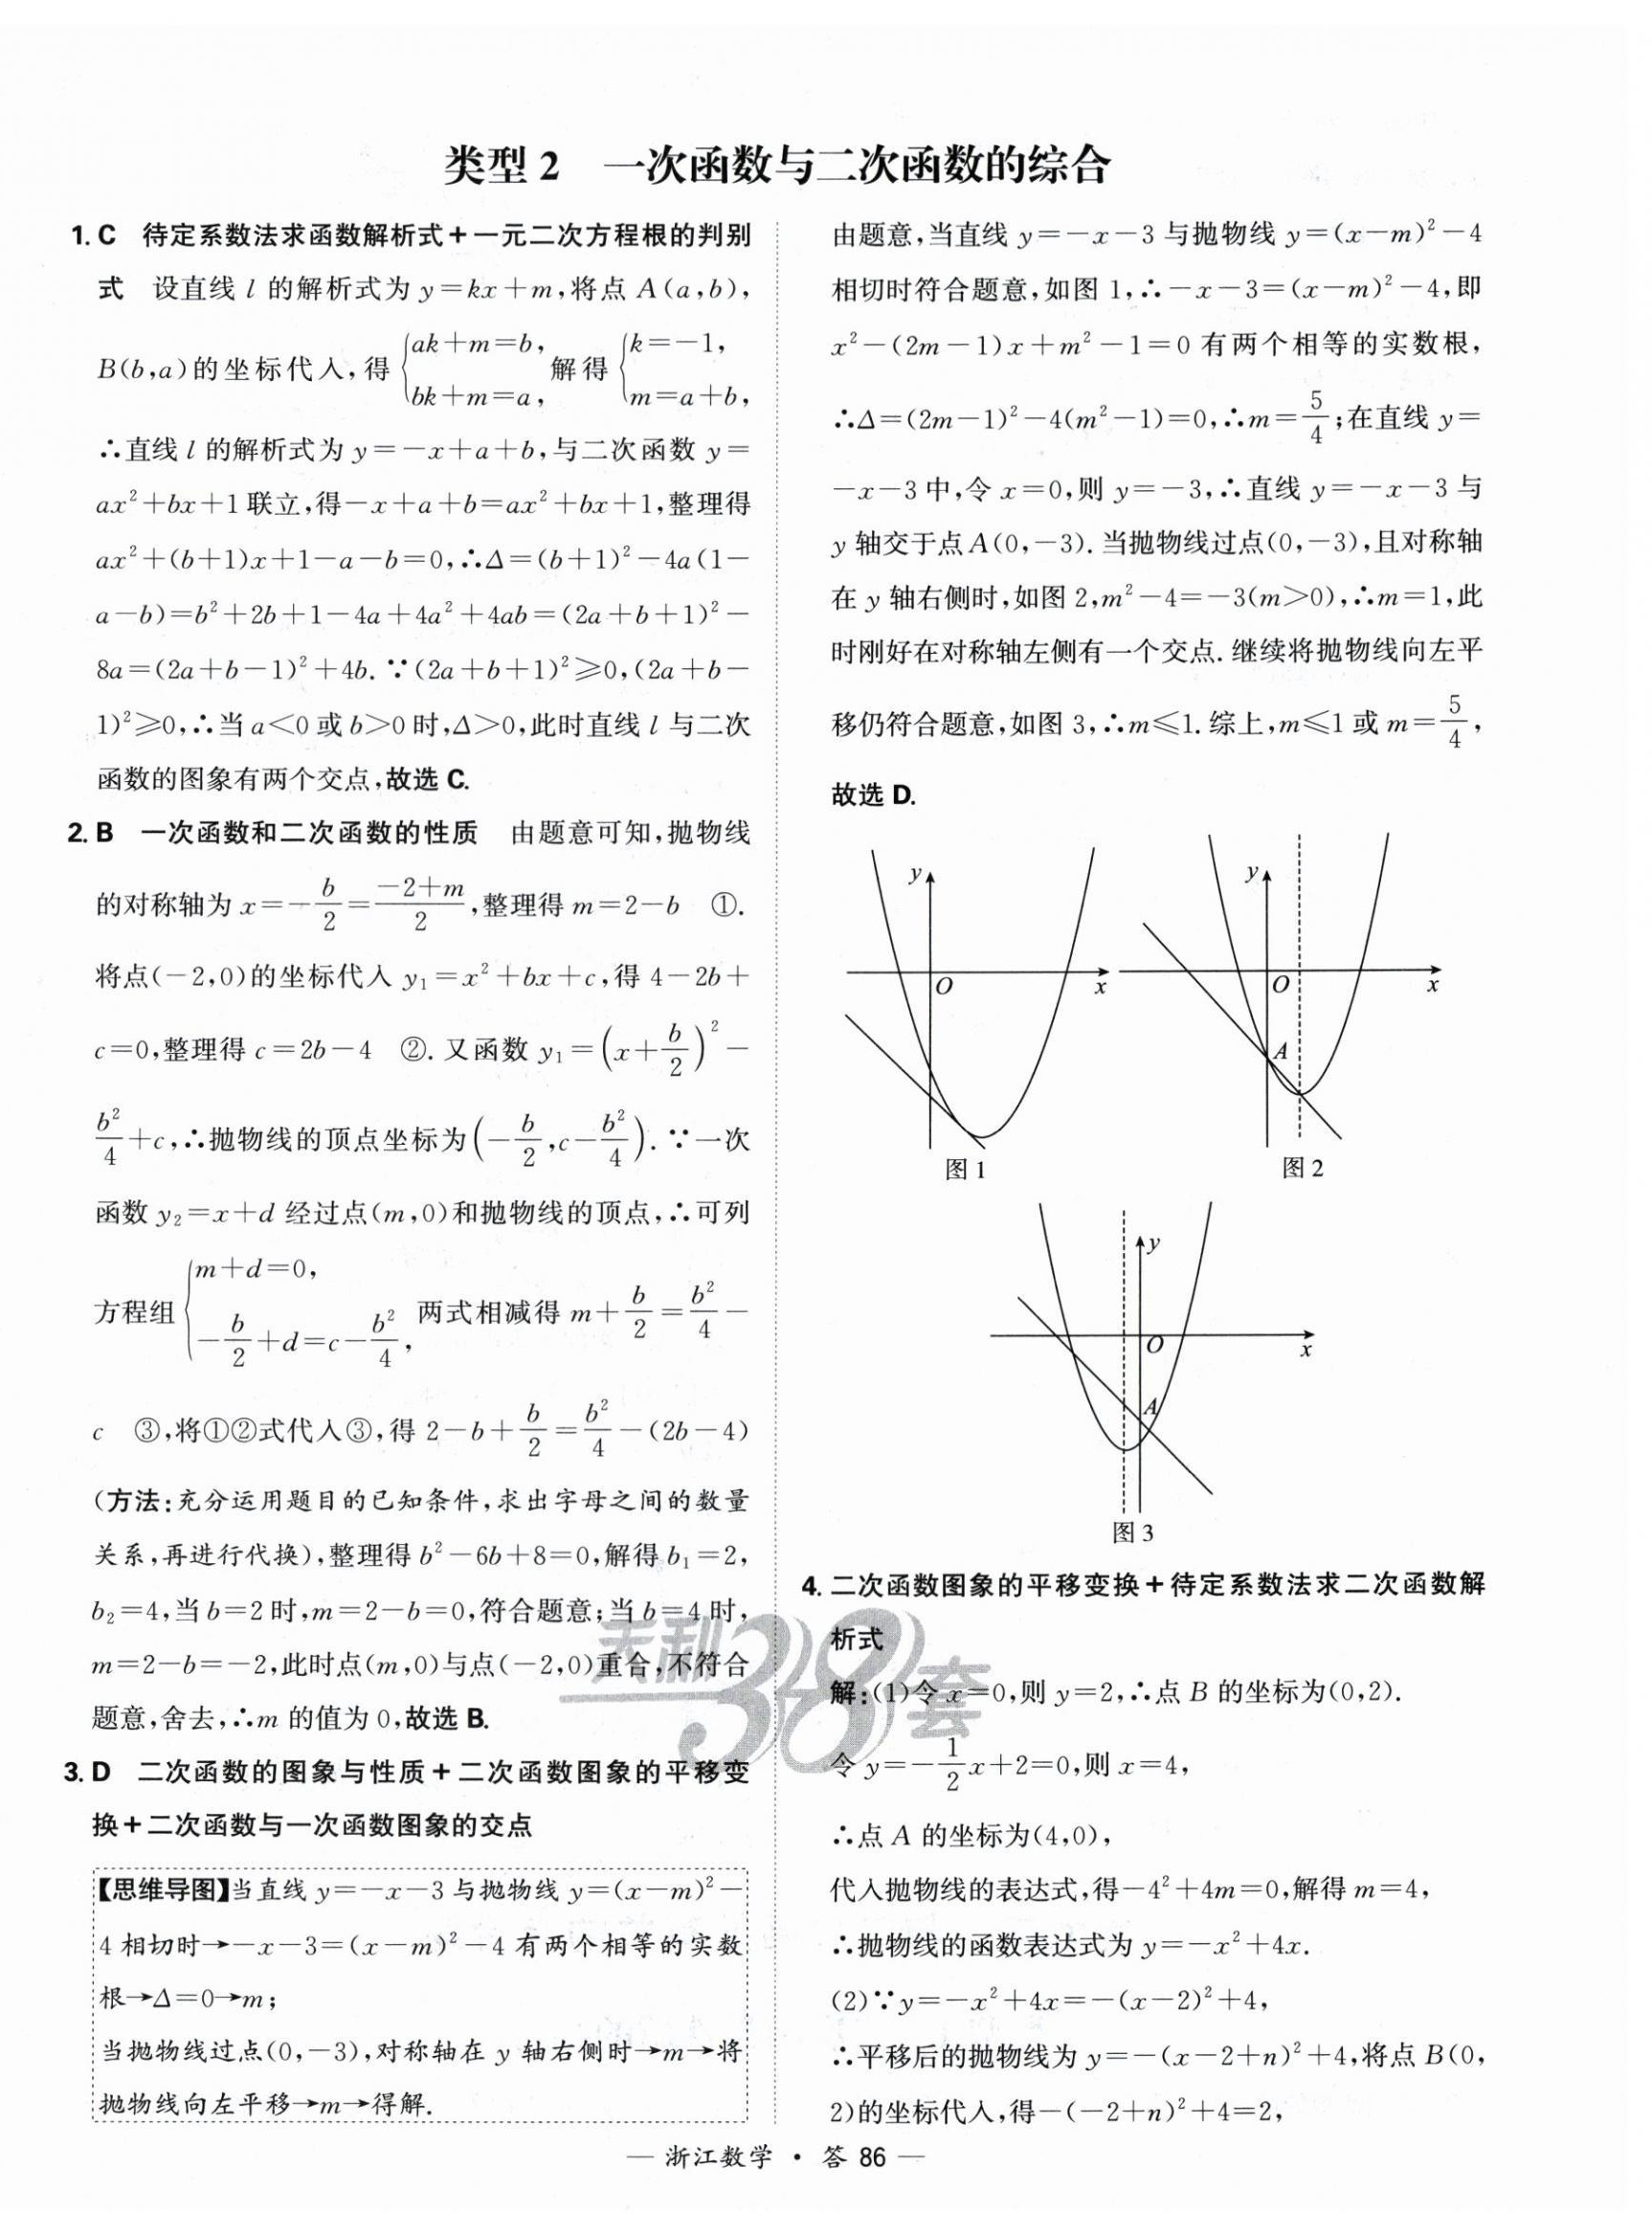 类型2　一次函数与二次函数的综合
1. C　待定系数法求函数解析式+一元二次方程根的判别
式　设直线 l 的解析式为 y=kx+m,将点 A(a,b),
B(b,a)的坐标代入,得{ak+m=b, bk+m=a, 解得{k=-1, m=a+b,
∴直线 l 的解析式为 y=-x+a+b,与二次函数 y=
ax²+bx+1联立,得-x+a+b=ax²+bx+1,整理得
ax²+(b+1)x+1-a-b=0,∴Δ=(b+1)²-4a(1-
a-b)=b²+2b+1-4a+4a²+4ab=(2a+b+1)²-
8a=(2a+b-1)²+4b.∵(2a+b+1)²≥0,(2a+b-
1)²≥0,∴当a<0或b>0时,Δ>0,此时直线 l 与二次
函数的图象有两个交点,故选 C.
2. B　一次函数和二次函数的性质　由题意可知,抛物线
的对称轴为 x=-b/2=(-2+m)/2,整理得 m=2-b　①.
将点(-2,0)的坐标代入 y₁=x²+bx+c,得 4-2b+
c=0,整理得 c=2b-4　②.又函数 y₁=(x+b/2)²-
b²/4+c,∴抛物线的顶点坐标为(-b/2,c-b²/4).∵一次
函数 y₂=x+d 经过点(m,0)和抛物线的顶点,∴可列
方程组{m+d=0, -b/2+d=c-b²/4, 两式相减得 m+b/2=b²/4-
c　③,将①②式代入③,得 2-b+b/2=b²/4-(2b-4)
(方法:充分运用题目的已知条件,求出字母之间的数量
关系,再进行代换),整理得 b²-6b+8=0,解得 b₁=2,
b₂=4,当 b=2时,m=2-b=0,符合题意;当 b=4时,
m=2-b=-2,此时点(m,0)与点(-2,0)重合,不符合
题意,舍去,∴m 的值为0,故选 B.
3. D　二次函数的图象与性质+二次函数图象的平移变
换+二次函数与一次函数图象的交点
【思维导图】当直线 y=-x-3与抛物线 y=(x-m)²-
4相切时→-x-3=(x-m)²-4有两个相等的实数
根→Δ=0→m;
当抛物线过点(0,-3),对称轴在 y 轴右侧时→m→将
抛物线向左平移→m→得解.
由题意,当直线 y=-x-3与抛物线 y=(x-m)²-4
相切时符合题意,如图1,∴-x-3=(x-m)²-4,即
x²-(2m-1)x+m²-1=0有两个相等的实数根,
∴Δ=(2m-1)²-4(m²-1)=0,∴m=5/4;在直线 y=
-x-3中,令 x=0,则 y=-3,∴直线 y=-x-3与
y 轴交于点A(0,-3).当抛物线过点(0,-3),且对称轴
在 y 轴右侧时,如图2,m²-4=-3(m>0),∴m=1,此
时刚好在对称轴左侧有一个交点.继续将抛物线向左平
移仍符合题意,如图3,∴m≤1.综上,m≤1或 m=5/4,
故选 D.
y
O
x
图1
y
O
x
A
图2
y
O
x
A
图3
4. 二次函数图象的平移变换+待定系数法求二次函数解
析式
解:(1)令 x=0,则 y=2,∴点 B 的坐标为(0,2).
令 y=-1/2x+2=0,则 x=4,
∴点 A 的坐标为(4,0),
代入抛物线的表达式,得-4²+4m=0,解得 m=4,
∴抛物线的函数表达式为 y=-x²+4x.
(2)∵y=-x²+4x=-(x-2)²+4,
∴平移后的抛物线为 y=-(x-2+n)²+4,将点 B(0,
2)的坐标代入,得-(-2+n)²+4=2,
天利38套
— 浙江数学 · 答 86 —